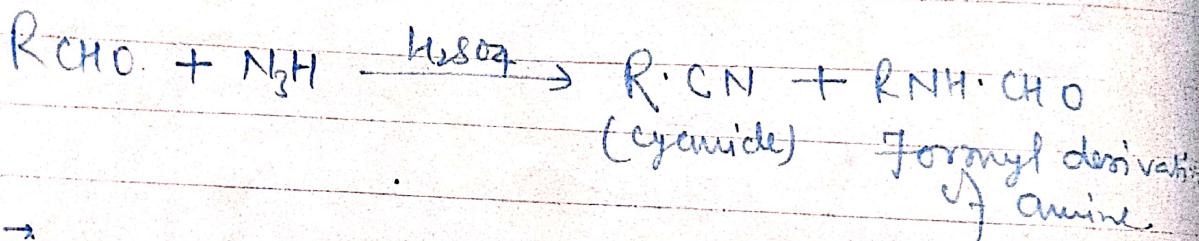 RCHO + N₃H —H₂SO₄→ R·CN + RNH·CHO
(cyanide) Formyl
of amine
→